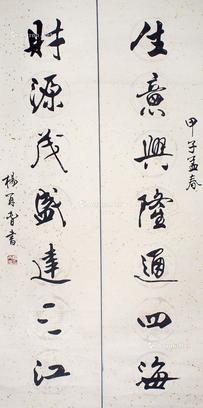 甲子孟春
生意興隆通四海
財源茂盛達三江
楊百魯書